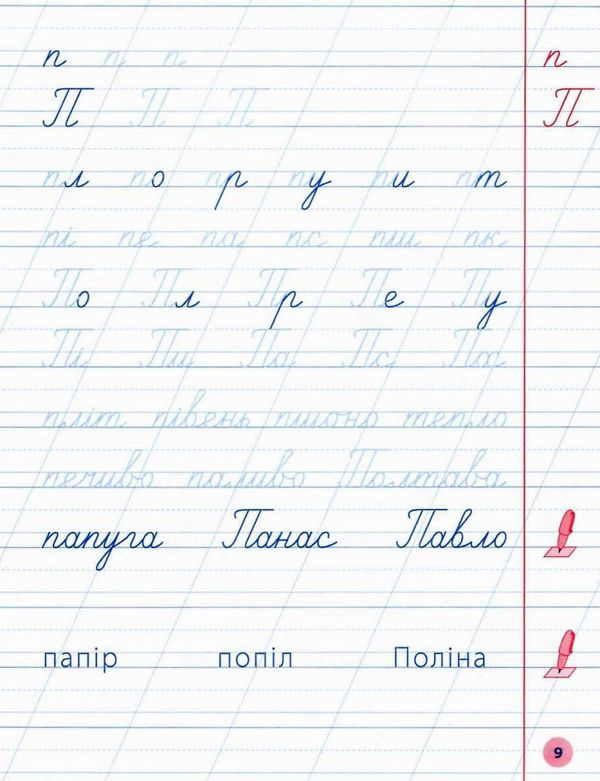 п п п п
П П П П
пл по пр пу пи пт
пі пе па пс пш пк
По Пл Пр Пе Пу
Пі Пи Па Пс
пліт півень пшоно тепло
печиво паливо Полтава
папуга Панас Павло
папір попіл Поліна
9